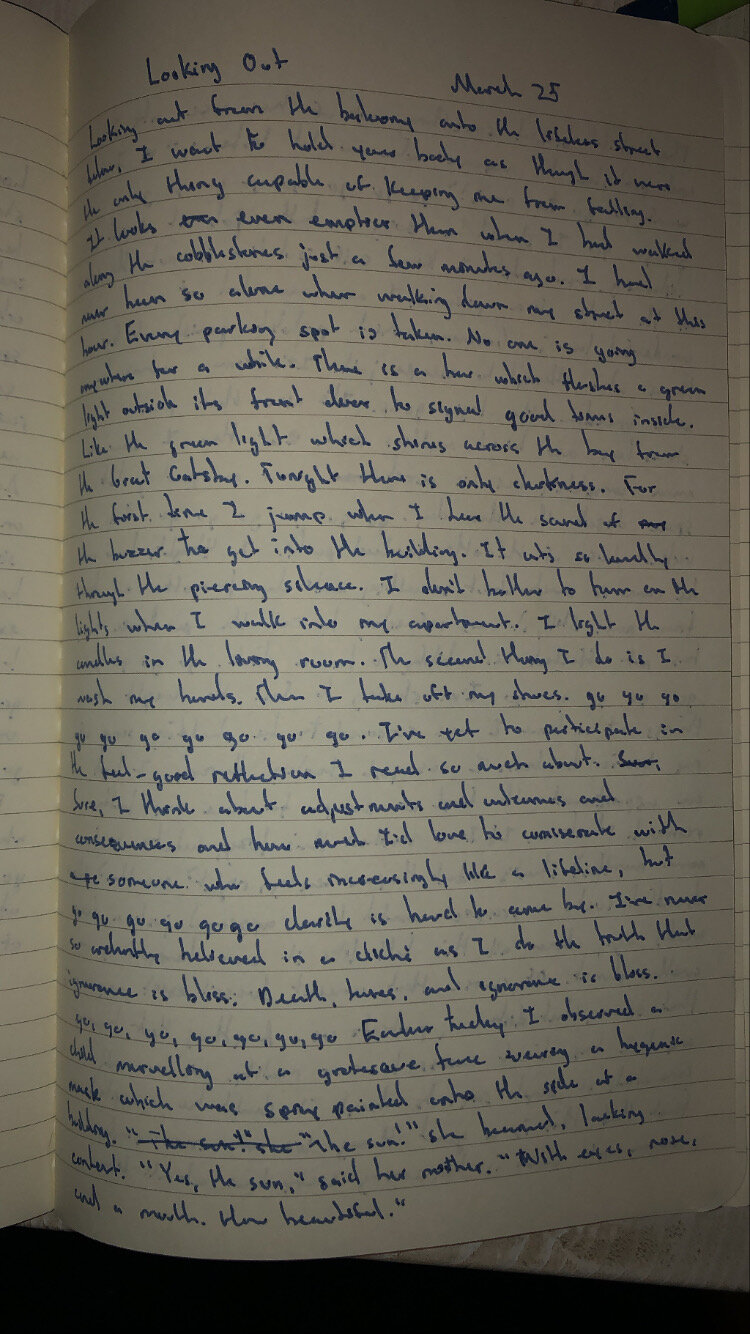 Looking Out
March 25
Looking out from the balcony onto the lifeless street
below, I want to hold your body as though it were
the only thing capable of keeping me from falling.
It looks even emptier than when I had walked
along the cobblestones just a few minutes ago. I had
never been so alone when walking down my street at this
hour. Every parking spot is taken. No one is going
anywhere for a while. There is a bar which flashes a green
light outside its front door to signal good times inside.
Like the green light which shines across the bay from
the Great Gatsby. Tonight there is only darkness. For
the first time I jump when I hear the sound of
the buzzer to get into the building. It cuts so loudly
through the piercing silence. I don't bother to turn on the
lights when I walk into my apartment. I light the
candles in the living room. The second thing I do is I
wash my hands. Then I take off my shoes. go go go
go go go go go go go. I've yet to participate in
the feel-good reflection I read so much about.
Sure, I think about adjustments and outcomes and
consequences and how much I'd love to comiserate with
someone who feels increasingly like a lifeline, but
go go go go go go clarity is hard to come by. I've never
so ardently believed in a cliché as I do the truth that
ignorance is bliss. Death, taxes, and ignorance is bliss.
go, go, go, go, go, go, go Earlier today I observed a
child marvelling at a grotesque face wearing a hygenic
mask which was spray painted onto the side of a
building. "The sun!" she beamed, looking
content. "Yes, the sun," said her mother. "With eyes, nose,
and a mouth. How beautiful."